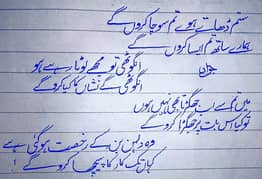 ستم ڈھاتے ہوے تم سوچا کرو گے
ہمارے ساتھ تم ایسا کرو گے
انگوٹھی تو مجھے لوٹا رہے ہو
انگوٹھی کے نشاں کا کیا کرو گے
میں تم سے اب جھگڑتا بھی نہیں ہوں
تو کیا اس بات پر جھگڑا کرو گے
وہ دلہن بن کے رخصت ہو گئی ہے
کہاں تک کار کا پیچھا کرو گے !